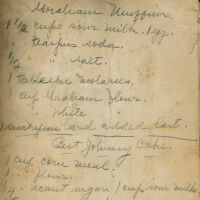 Graham Muffins.
1 1/2 cups sour milk. 1 egg.
" teaspns soda.
1/2 " salt.
1 tablespn molasses.
cup Graham flour.
" White "
1 dessertspoon lard added last.
Best Johnny Cake.
1 cup corn meal.
1 " flour.
1/4 " scant sugar, 1 cup sour milk.